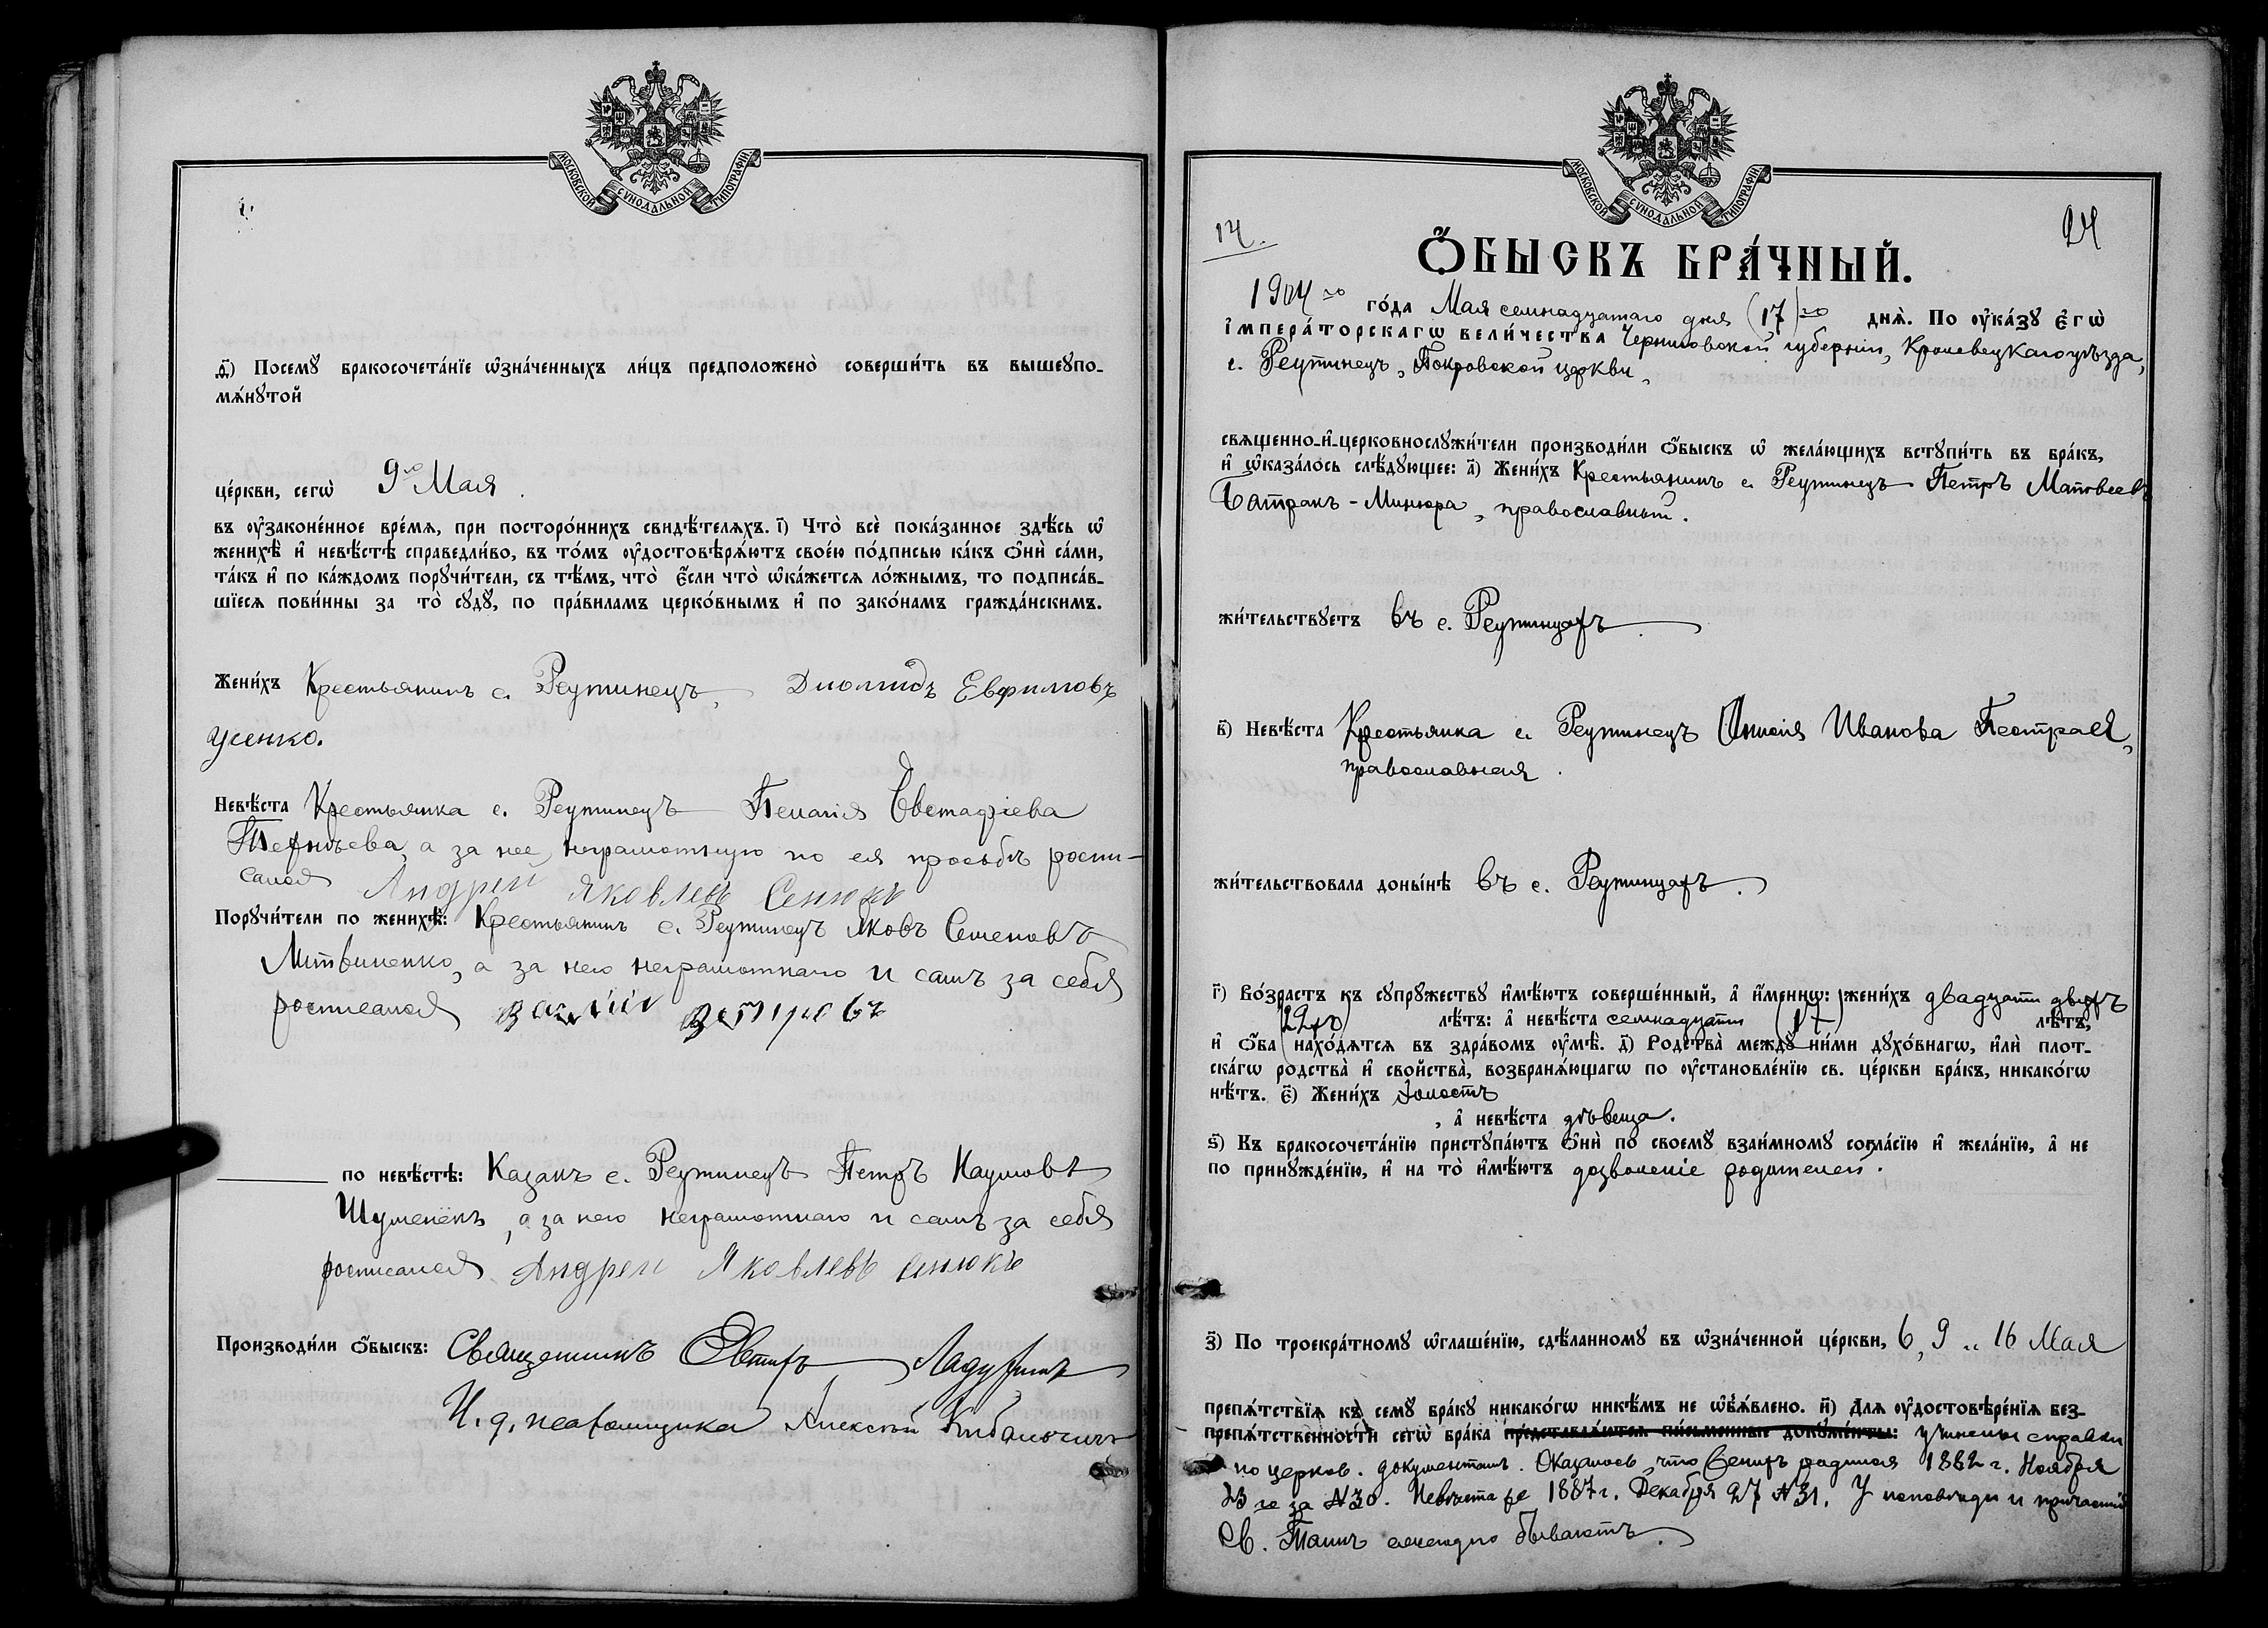 МОСКОВСКОЙ СѴНОДАЛЬНОЙ ТИПОГРАФІИ
д҃і) Посемꙋ бракосочета́нїе ѡ҆зна́ченныхъ ли́цъ предположено̀ соверши́ть въ вышеꙋпо-
мѧ́нꙋтой
це́ркви, сегѡ̀ 9го Мая.
въ ᲂу҆законе́нное вре́мѧ, при посторо́ннихъ свидѣ́телѧхъ. і҃) Что̀ всѐ пока́занное здѣ́сь ѡ҆
женихѣ̀ и҆ невѣ́стѣ справедли́во, въ то́мъ ᲂу҆достовѣрѧ́ютъ свое́ю по́дписью ка́къ ѻ҆нѝ са́ми,
та́къ и҆ по ка́ждомъ порꙋчи́тели, съ тѣ́мъ, что̀ є҆́сли что̀ ѡ҆ка́жетсѧ ло́жнымъ, то подписа́в-
шїесѧ пови́нны за то̀ сꙋдꙋ̀, по пра́виламъ церко́внымъ и҆ по зако́намъ гражда́нскимъ.
Жени́хъ Крестьянинъ с. Реутинецъ, Диомидъ Евфимовъ
Усенко.
Невѣ́ста Крестьянка с. Реутинецъ Пелагія Евстафіева
а за нее, неграмотную по ея просьбѣ роспи-
сался Андрей Яковлевъ Сенюкъ
Порꙋчи́тели по женихѣ̀: Крестьянинъ с. Реутинецъ Яковъ Семеновъ
Литвиненко, а за него неграмотнаго и самъ за себя
росписался
по невѣ́стѣ: Казакъ с. Реутинецъ Петръ Наумовъ
а за него неграмотнаго и самъ за себя
росписался Андрей Яковлевъ Сенюкъ
Производи́ли ѻ҆́быскъ: Священникъ
И. д. псаломщика Алексѣй Кибальчичъ
МОСКОВСКОЙ СѴНОДАЛЬНОЙ ТИПОГРАФІИ
14. 24
Ѻ҆́БЫСКЪ БРА́ЧНЫЙ.
1904го го́да Мая семнадцатаго дня (17)го днѧ̀. По ᲂу҆ка́зꙋ є҆гѡ̀
і҆мпера́торскагѡ вели́чества Черниговской губерніи, Кролевецкаго уѣзда,
с. Реутинецъ, Покровской церкви,
свѧщенно-и҆-церковнослꙋжи́тели производи́ли ѻ҆́быскъ ѡ҆ жела́ющихъ встꙋпи́ть въ бра́къ,
и҆ ѡ҆каза́лось слѣ́дꙋющее: а҃) Жени́хъ Крестьянинъ с. Реутинецъ Петръ Матвеевъ
Батракъ-Минюра, православный.
жи́тельствꙋетъ въ с. Реутинцахъ
в҃) Невѣ́ста Крестьянка с. Реутинецъ Анисія Иванова Пестрая,
православная.
жи́тельствовала доны́нѣ въ с. Реутинцахъ.
г҃) Во́зрастъ къ сꙋпрꙋ́жествꙋ и҆мѣ́ютъ соверше́нный, а҆ и҆́меннѡ: жени́хъ двадцати двухъ
(22хъ) лѣ́тъ: а҆ невѣ́ста семнадцати (17) лѣ́тъ,
и҆ ѻ҆́ба нахо́дѧтсѧ въ здра́вомъ ᲂу҆мѣ̀. д҃) Родства̀ междꙋ̀ ни́ми дꙋхо́внагѡ, и҆лѝ плот-
ска́гѡ родства̀ и҆ свойства̀, возбранѧ́ющагѡ по ᲂу҆становле́нїю св. це́ркви бра́къ, никако́гѡ
нѣ́тъ. є҃) Жени́хъ холостъ
, а҆ невѣ́ста дѣвица.
ѕ҃) Къ бракосочета́нїю пристꙋпа́ютъ ѻ҆нѝ по своемꙋ̀ взаи́мномꙋ согла́сїю и҆ жела́нїю, а҆ не
по принꙋжде́нїю, и҆ на то̀ и҆мѣ́ютъ дозволеніе родителей.
з҃) По троекра́тномꙋ ѡ҆глаше́нїю, сдѣ́ланномꙋ въ ѡ҆зна́ченной це́ркви, 6, 9 и 16 Мая
препѧ́тствїѧ къ семꙋ̀ бра́кꙋ никако́гѡ никѣ́мъ не ѡ҆б̾ѧ́влено. и҃) Для ᲂу҆достовѣре́нїѧ без-
препѧ́тственности сегѡ̀ бра́ка представлѧ́ютсѧ пи́сьменные докꙋме́нты: учинены справки
по церков. документамъ. Оказалось, что женихъ родился 1882 г. Ноября
23 го за №30. Невѣста же 1887 г. Декабря 27 №31. У исповѣди и причастія
Св. Таинъ ежегодно бываютъ.